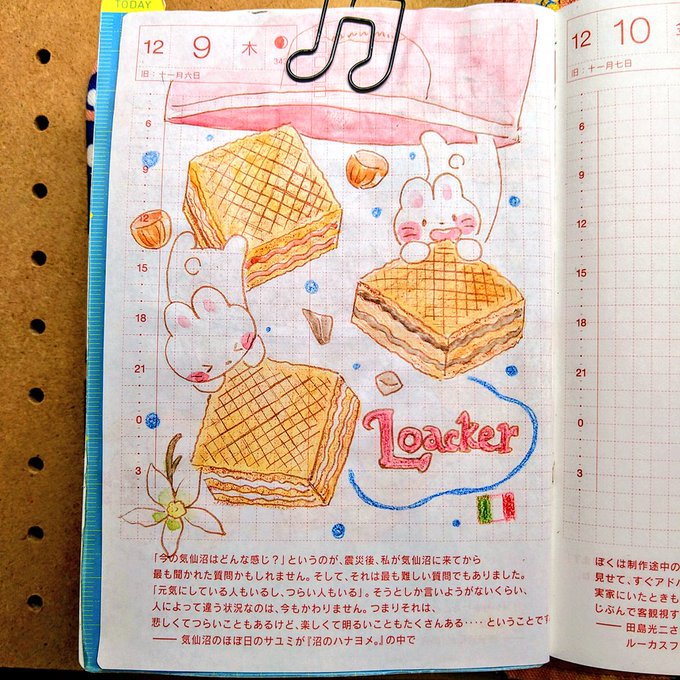 TODAY
12 9 木
旧：十一月六日
6
9
12
15
18
21
0
3
Loacker
「今の気仙沼はどんな感じ？」というのが、震災後、私が気仙沼に来てから
最も聞かれた質問かもしれません。そして、それは最も難しい質問でもありました。
「元気にしている人もいるし、つらい人もいる」。そうとしか言いようがないくらい、
人によって違う状況なのは、今もかわりません。つまりそれは、
悲しくてつらいこともあるけど、楽しくて明るいこともたくさんある‥‥ということです
―― 気仙沼のほぼ日のサユミが『沼のハナヨメ。』の中で
12 10
旧：十一月七日
6
9
12
15
18
21
0
3
ぼくは制作途中の
見せて、すぐアドバ
実家にいたときも
じぶんで客観視す
―― 田島光二さ
ルーカスフ